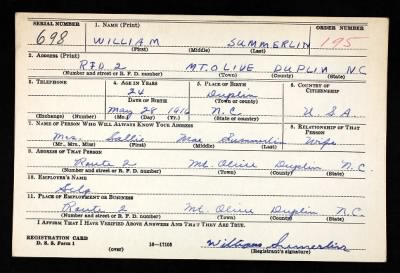 SERIAL NUMBER 1. NAME (Print) ORDER NUMBER
698 WILLIAM SUMMERLIN 195
(First) (Middle) (Last)
2. ADDRESS (Print)
RFD 2 MT. OLIVE DUPLIN NC
(Number and street or R. F. D. number) (Town) (County) (State)
3. TELEPHONE 4. AGE IN YEARS 5. PLACE OF BIRTH 6. COUNTRY OF CITIZENSHIP
24 Duplin
DATE OF BIRTH (Town or county)
May 28 1916 N.C. U.S.A.
(Exchange) (Number) (Mo.) (Day) (Yr.) (State or country)
7. NAME OF PERSON WHO WILL ALWAYS KNOW YOUR ADDRESS 8. RELATIONSHIP OF THAT PERSON
Mrs. Sallie Mae Summerlin Wife
(Mr., Mrs., Miss) (First) (Middle) (Last)
9. ADDRESS OF THAT PERSON
Route 2 Mt. Olive Duplin N.C.
(Number and street or R. F. D. number) (Town) (County) (State)
10. EMPLOYER'S NAME
Self
11. PLACE OF EMPLOYMENT OR BUSINESS
Route 2 Mt. Olive Duplin N.C.
(Number and street or R. F. D. number) (Town) (County) (State)
I AFFIRM THAT I HAVE VERIFIED ABOVE ANSWERS AND THAT THEY ARE TRUE.
REGISTRATION CARD
D. S. S. Form 1 (over) 16-17105 William Summerlin
(Registrant's signature)